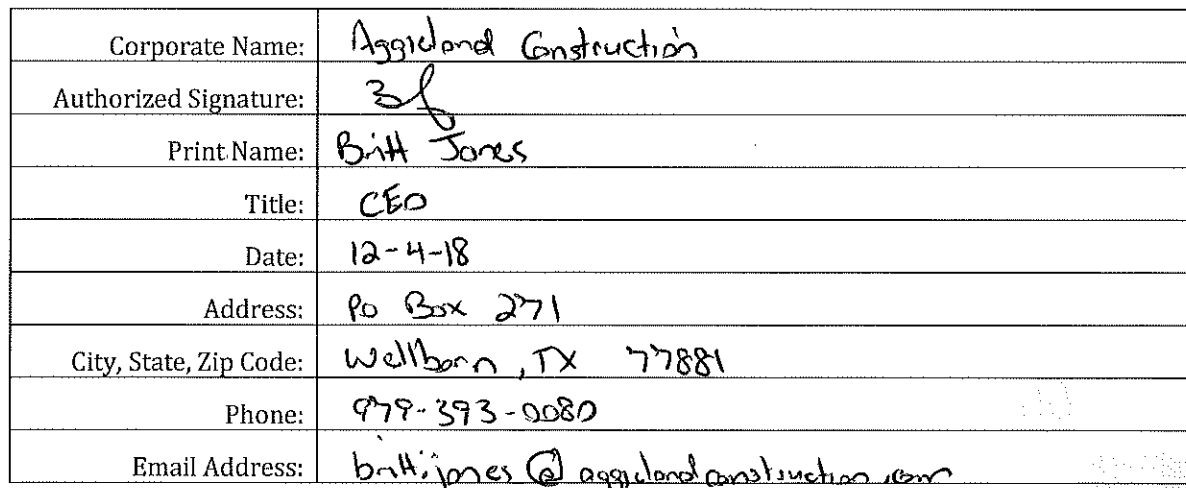 Corporate Name: Aggieland Construction
Authorized Signature:
Print Name: Britt Jones
Title: CEO
Date: 12-4-18
Address: Po Box 271
City, State, Zip Code: Wellborn, TX 77881
Phone: 979-393-0080
Email Address: britt.jones@aggielandconstruction.com